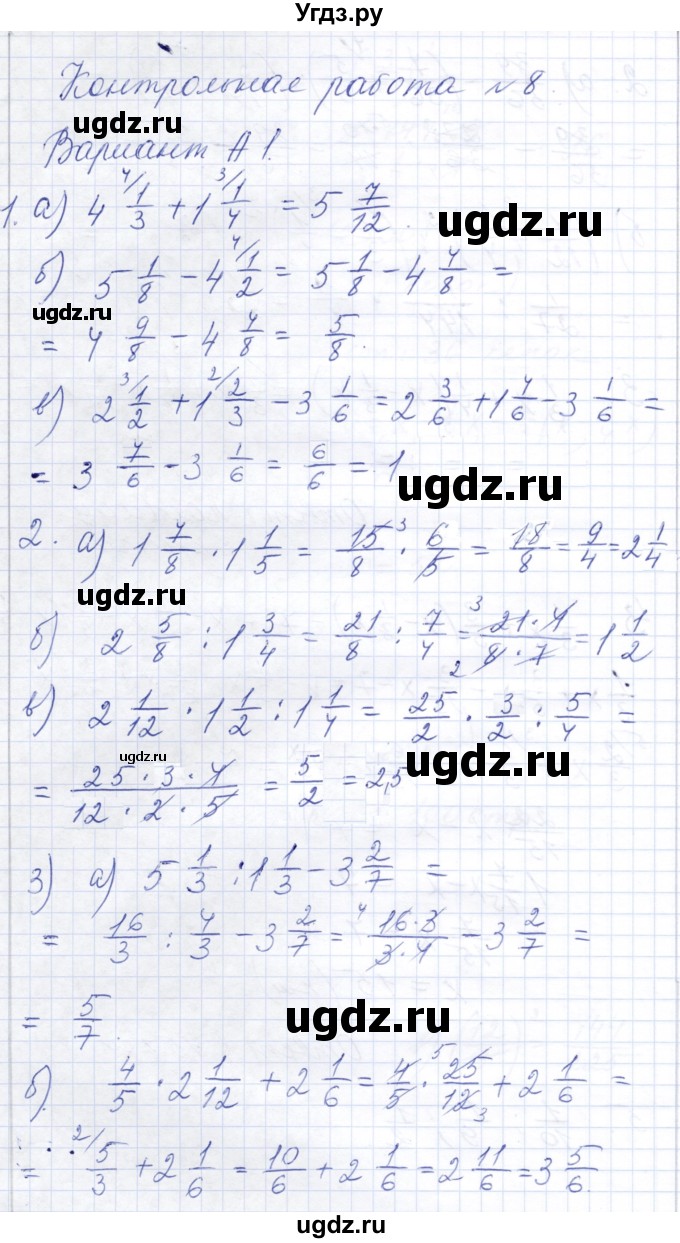 Угдз.ру
Контрольная работа №8.
ugdz.ru
Вариант А1.
1. а) 4 4/ 1/3 + 1 3/ 1/4 = 5 7/12.
ugdz.ru
б) 5 1/8 - 4 4/ 1/2 = 5 1/8 - 4 4/8 =
ugdz.ru
= 4 9/8 - 4 4/8 = 5/8.
в) 2 3/ 1/2 + 1 2/ 2/3 - 3 1/6 = 2 3/6 + 1 4/6 - 3 1/6 =
= 3 7/6 - 3 1/6 = 6/6 = 1
ugdz.ru
2. а) 1 7/8 · 1 1/5 = 15/8 3 · 6/5 = 18/8 = 9/4 = 2 1/4
ugdz.ru
б) 2 5/8 : 1 3/4 = 21/8 : 7/4 = 3 21·4/8·7 2 = 1 1/2
в) 2 1/12 · 1 1/2 : 1 1/4 = 25/2 · 3/2 : 5/4 =
ugdz.ru
= 25·3·4/12·2·5 = 5/2 = 2,5
ugdz.ru
3) а) 5 1/3 : 1 1/3 - 3 2/7 =
= 16/3 : 4/3 - 3 2/7 = 4 16·3/3·4 - 3 2/7 =
ugdz.ru
= 5/7.
б) 4/5 · 2 1/12 + 2 1/6 = 4/5 · 5 25/12 3 + 2 1/6 =
= 2/ 5/3 + 2 1/6 = 10/6 + 2 1/6 = 2 11/6 = 3 5/6.
ugdz.ru